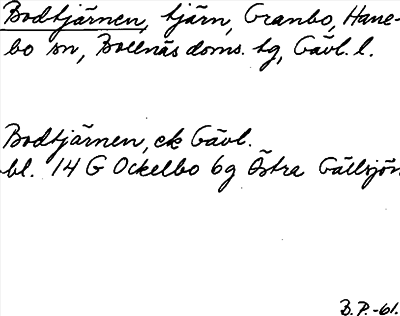 Bodtjärnen, tjärn, Granbo, Hane-
bo sn, Bollnäs doms. tg, Gävl. l.
Bodtjärnen, ek Gävl.
bl. 14 G Ockelbo 6g Östra Gällsjön
B.P.-61.